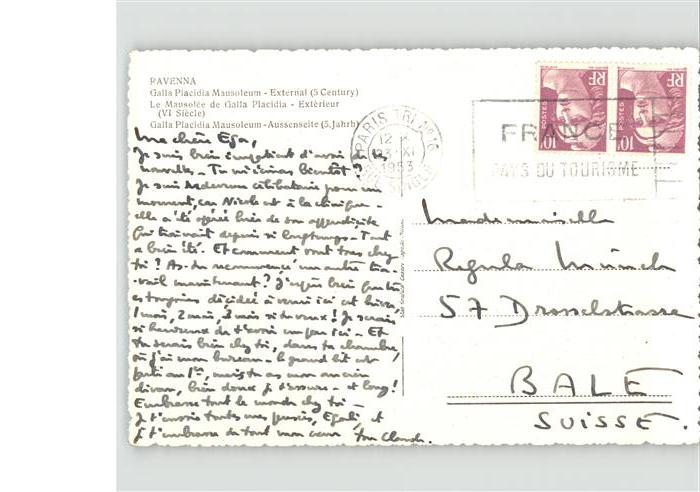 RAVENNA
Galla Placidia Mausoleum - External (5 Century)
Le Mausolée de Galla Placidia - Extérieur
(VI Siècle)
Galla Placidia Mausoleum - Aussenseite (5. Jahrh)
PARIS TRI N° 16
12 H
23 XI
1953
FRANCE
PAYS DU TOURISME
POSTES
RF
10F
POSTES
RF
10F
Ma chère Ega,
Je suis bien impatient d'avoir de tes
nouvelles - Tu m'écriras bientôt ?
Je suis célibataire pour un
moment, car Nicole est à la clinique -
elle a été opérée hier de son appendicite
qui traînait depuis si longtemps - Tout
a bien été. Et comment vont tres chez
toi ? As-tu recommencé un autre tra-
vail maintenant ? J'espère bien que tu
es toujours décidée à venir ici cet hiver
1 mois, 2 mois, 3 mois si tu veux ! Je serais
si heureux de t'avoir un peu ici - Et
tu serais bien chez toi, dans ta chambre,
où j'ai mon bureau - le grand lit est
parti au 1er, mais tu as mon ancien
divan, bien doux je t'assure - et long !
Embrasse tout le monde chez toi -
Je t'envoie toutes mes pensées, Egali, et
je t'embrasse de tout mon cœur ton Claude.
Mademoiselle
Regula Münch
57 Drosselstrasse
BALE
SUISSE.